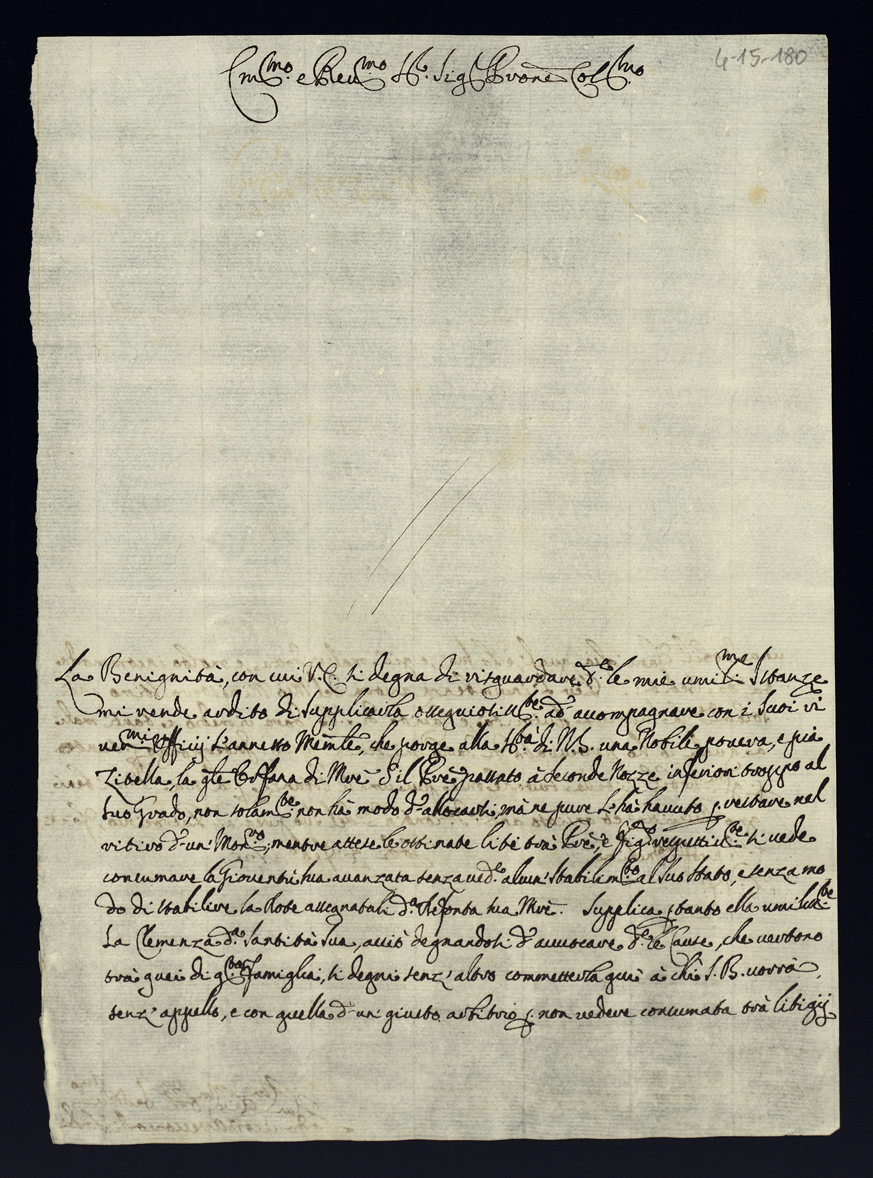 4-15-180
Em.mo e Rev.mo S.re Sig.r Prone Col.mo
La Benignità, con cui V.E. si degna di risguardare le mie umil.me Istanze
mi rende ardito di supplicarla ossequiosiss.te ad accompagnare con i suoi ri
ver.mi Officij l'annesso Memle, che porge alla S.tà di N.S. una Nobile povera, e più
Zitella, la qle Orfana di Mre S il Pre passato à seconde Nozze inferiori troppo al
suo Grado, non solam.te non hà modo d'allocarsi, mà ne pure l'hà havuto p restare nel
ritiro d'un Mon.ro, mentre attese le ostinate lite trà Pre, e Fig. respettiu.te si vede
consumare la Gioventù sua avanzata senza ved.e alcun' stabilim.to al suo stato, e senza mo
do di stabilire la Dote assegnatali d.a Defonta sua Mre. Supplica p tanto ella umilm.te
La Clemenza d.a Santità Sua, acciò degnandosi d'avvocare d.e le Cause, che vertono
trà quei di q.sta famiglia, si degni senz'altro commetterla quì à chi S.B. vorrà,
senz'appello, e con quella d'un giusto arbitrio p non vedere consumata trà litigij